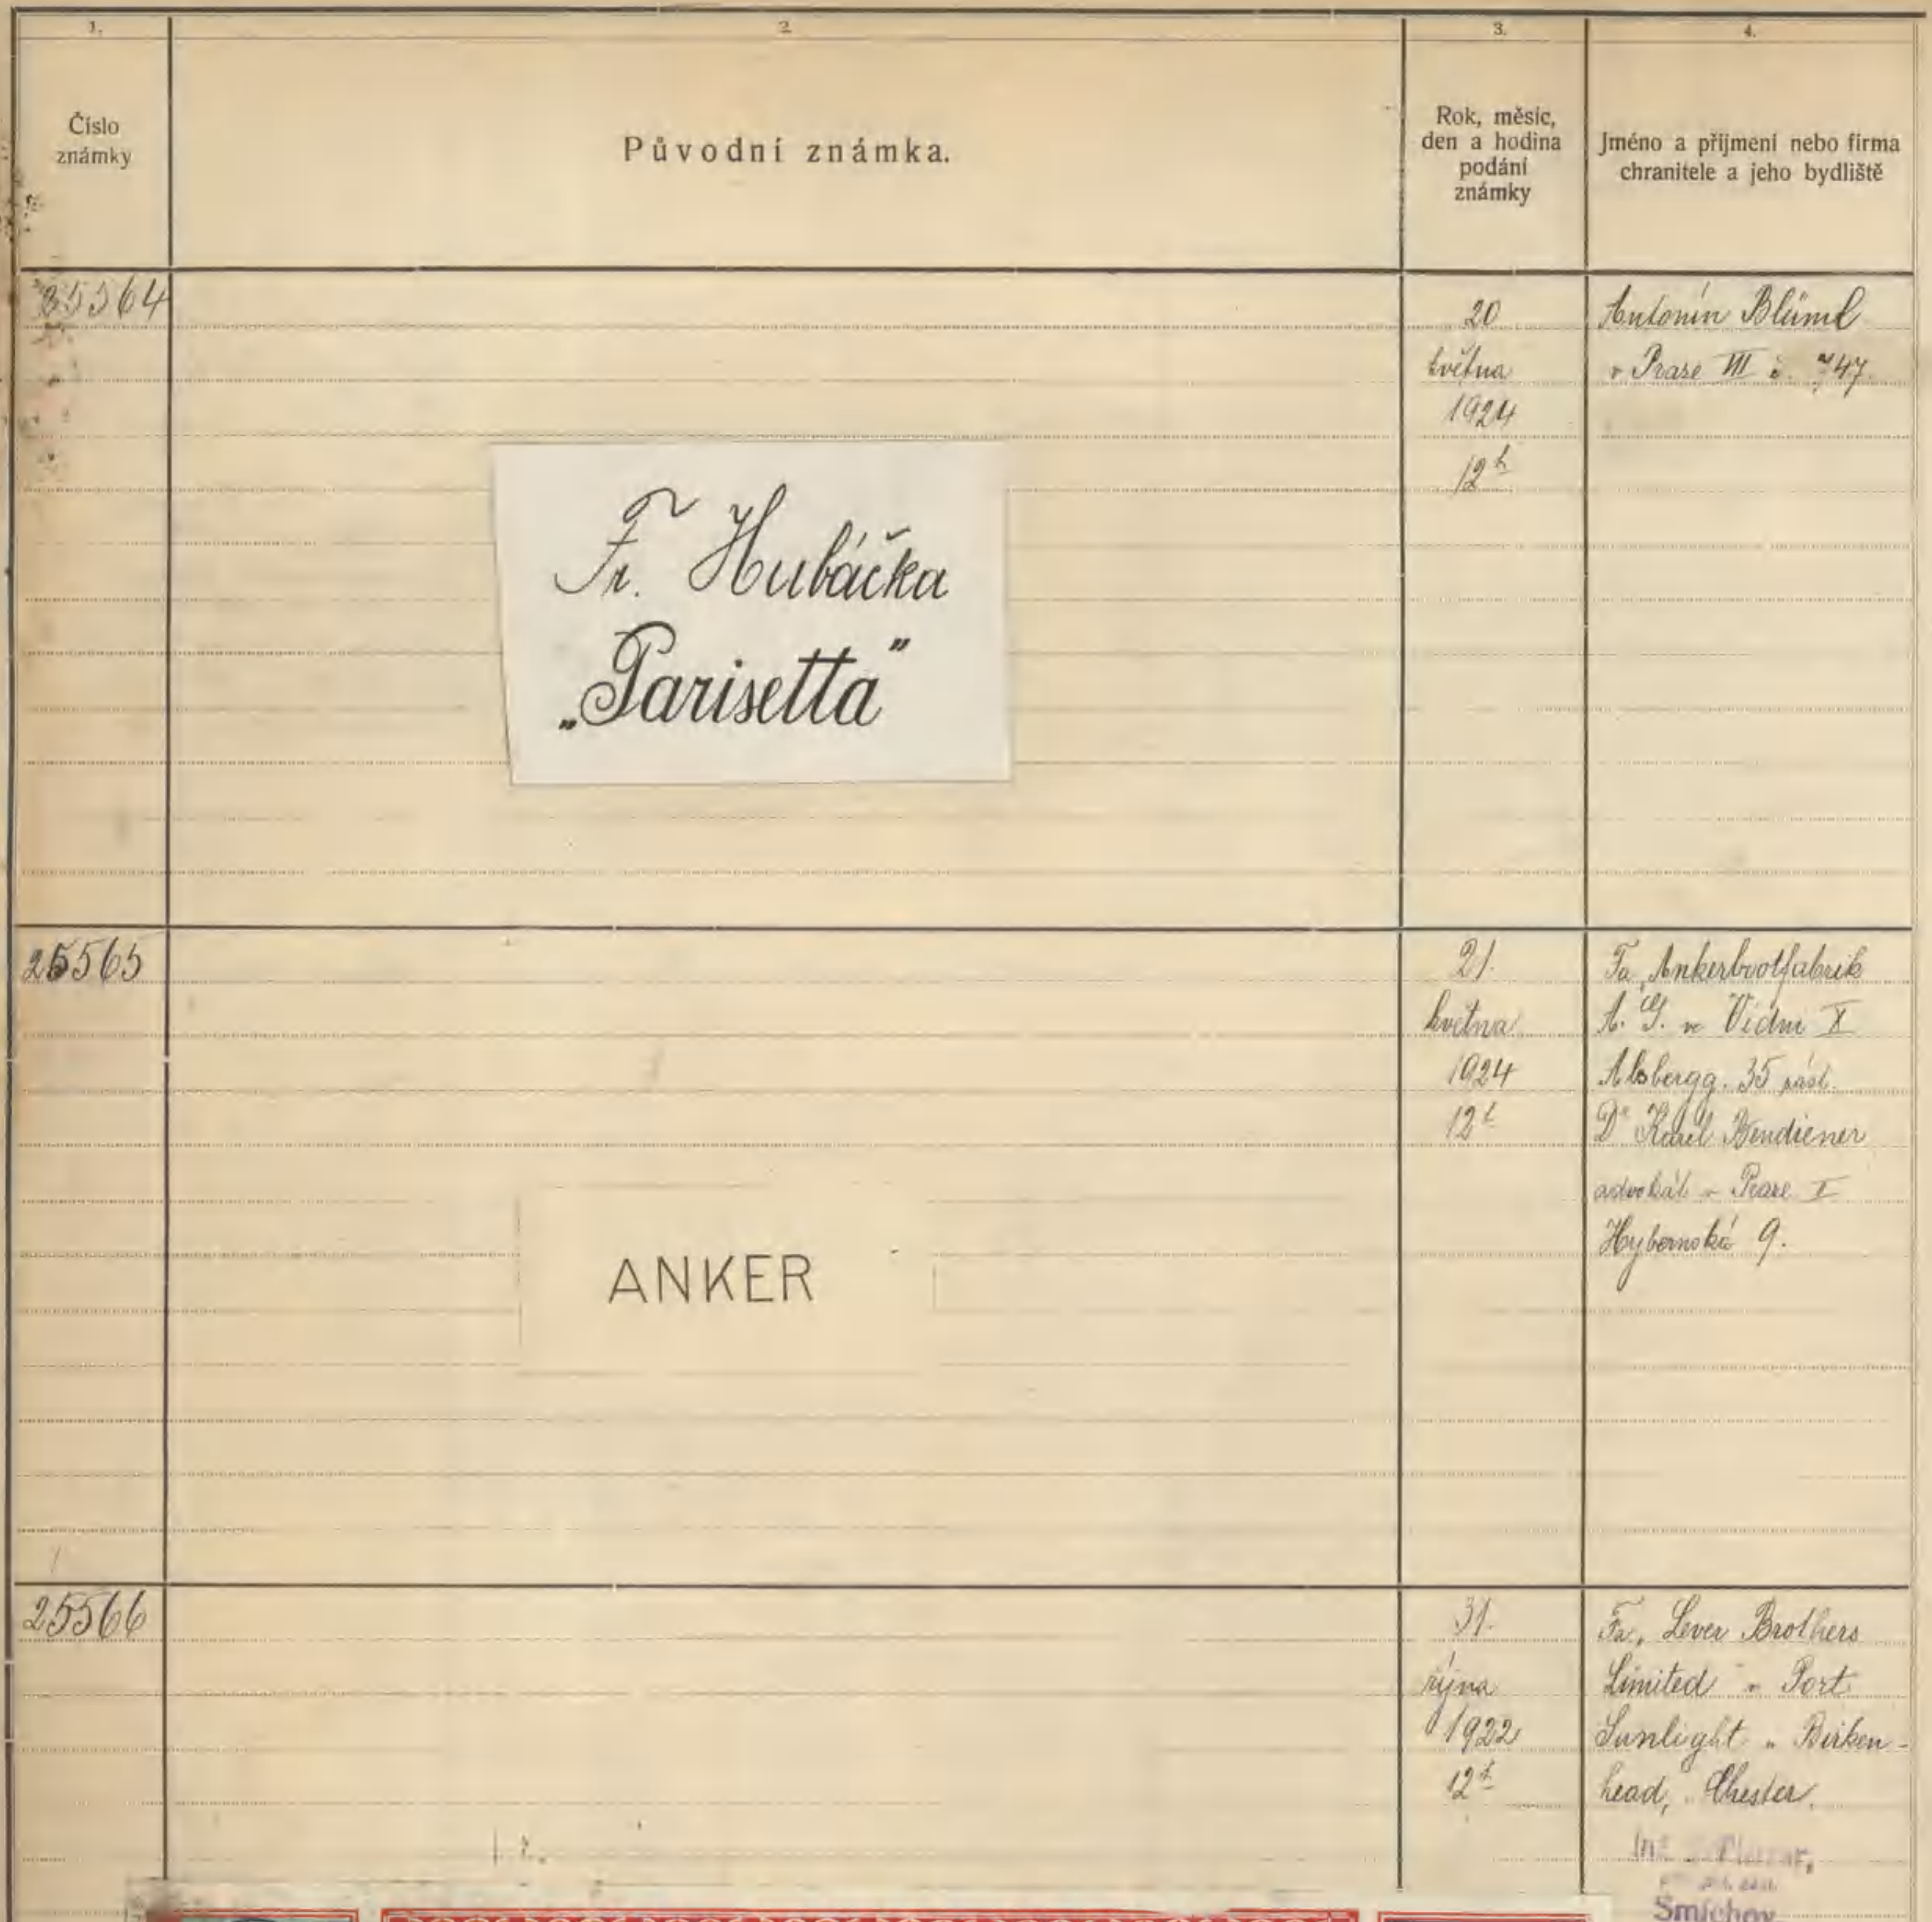 1.
2.
3.
4.
Číslo
známky
Původní známka.
Rok, měsíc,
den a hodina
podání
známky
Jméno a příjmení nebo firma
chranitele a jeho bydliště
25564
Fr. Hubáčka
„Parisetta"
20
května
1924
12 h
Antonín Blüml
v Praze III č.
25565
ANKER
21.
května
1924
12 h
Fa, Ankerbrotfabrik
A. G. ve Vídni X
Absbergg. 35 zást.
Dr Karel Bendiener
advokát v Praze
Hybernská 9.
25566
31.
října
1922
12 h
Fa, Lever Brothers
Limited v Port
Sunlight v Birken-
head, Chester.
Smíchov